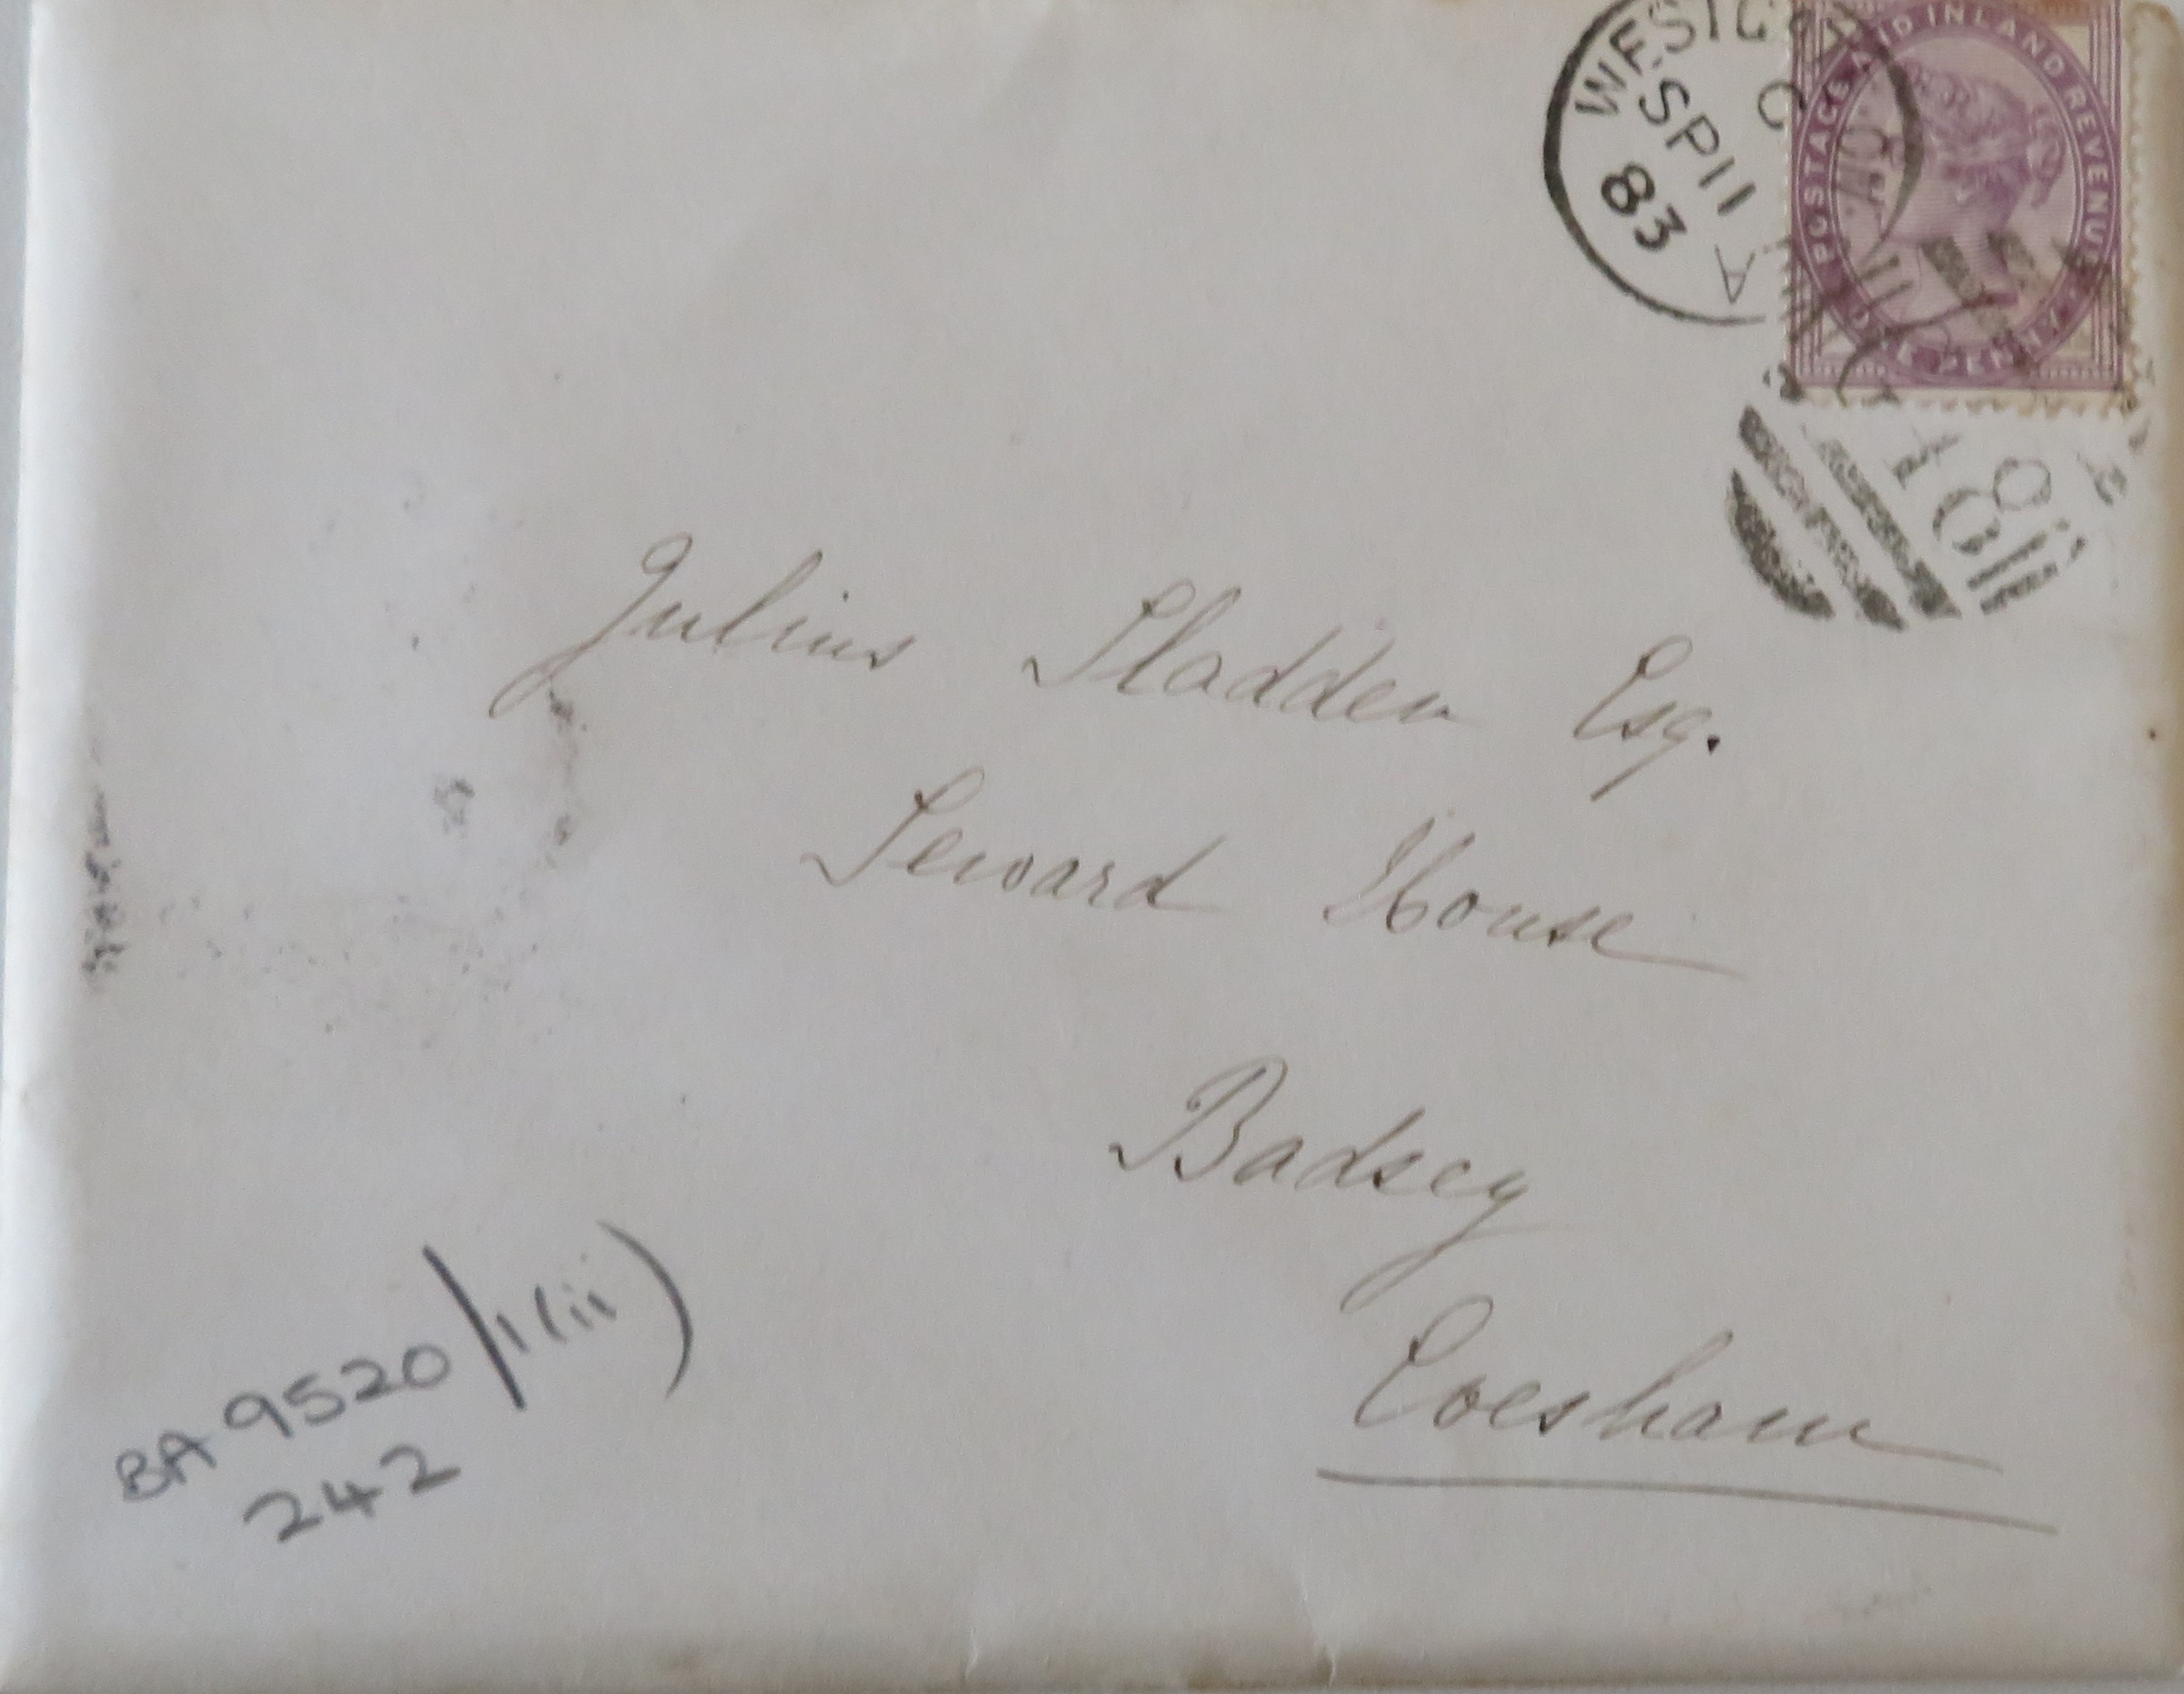 SP 11
83
A
POSTAGE AND INLAND REVENUE
ONE PENNY
Julius Sladden Esq.
Seward House
Badsey
Evesham
BA 9520/1(ii)
242